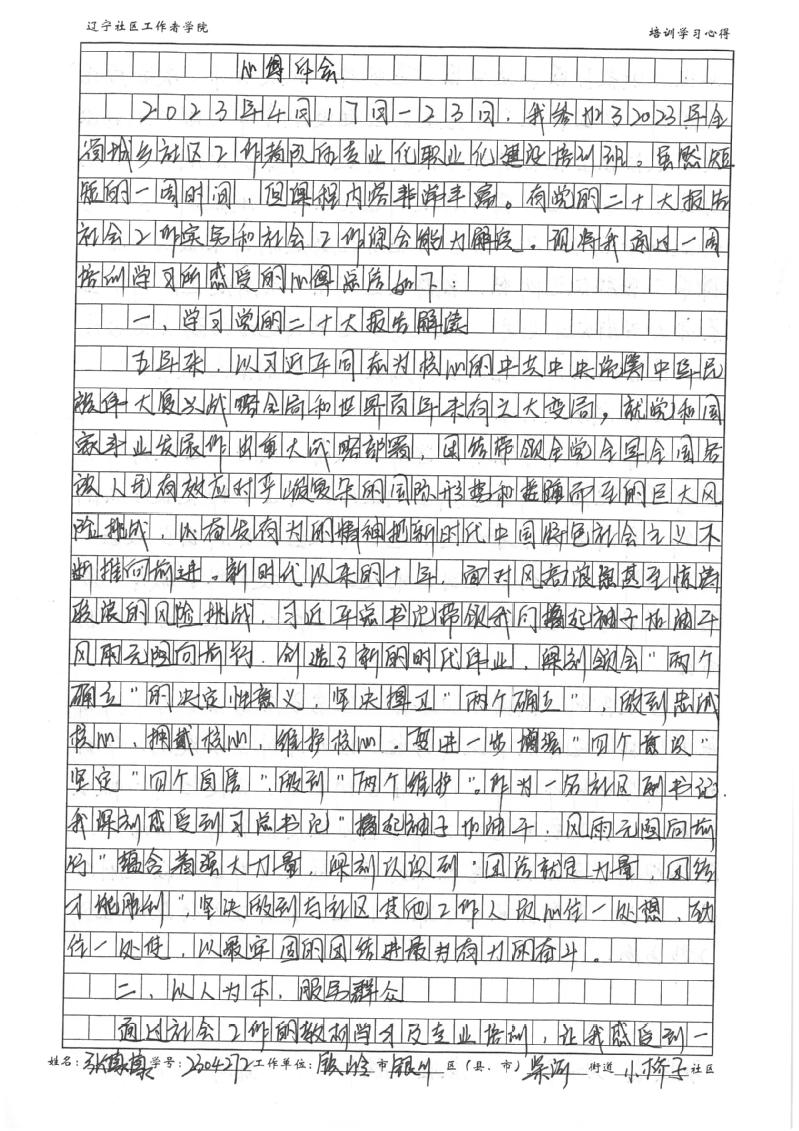 辽宁社区工作者学院 培训学习心得
心得体会
2023年4月17日-23日,我参加了2023年全
省城乡社区工作者队伍专业化职业化建设培训班。虽然短
短的一周时间,但课程内容非常丰富。有党的二十大报告
社会工作实务和社会工作综合能力解读。现将我通过一周
培训学习所感受的心得总结如下:
一、学习党的二十大报告解读
五年来,以习近平同志为核心的中共中央统筹中华民
族伟大复兴战略全局和世界百年未有之大变局,就党和国
家事业发展作出重大战略部署,团结带领全党全军全国各
族人民有效应对严峻复杂的国际形势和接踵而至的巨大风
险挑战,以奋发有为的精神把新时代中国特色社会主义不
断推向前进。新时代以来的十年,面对风高浪急甚至惊涛
骇浪的风险挑战,习近平总书记带领我们撸起袖子加油干
风雨无阻向前行,创造了新的时代伟业,深刻领会“两个
确立”的决定性意义,坚决捍卫“两个确立”,做到忠诚
核心,拥戴核心,维护核心。要进一步增强“四个意识”
坚定“四个自信”,做到“两个维护”。作为一名社区副书记,
我深刻感受到习总书记“撸起袖子加油干,风雨无阻向前
行”蕴含着强大力量,深刻认识到“团结就是力量,团结
才能胜利”,坚决做到与社区其他工作人员心往一处想,劲
往一处使,以最牢固的团结进最有力的奋斗。
二、以人为本,服务群众
通过社会工作的教材学习及专业培训,让我感受到一
姓名:张 学号:2304272 工作单位:铁岭市银川区(县、市)柴河街道小桥子社区